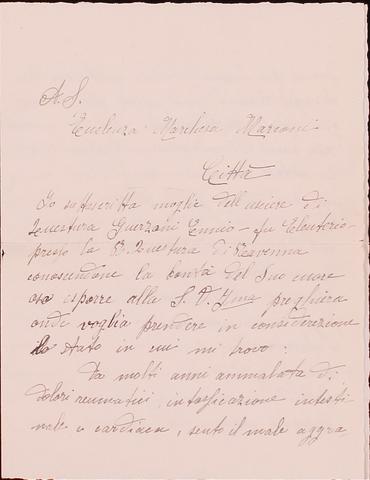 A. S.
Eccellenza Marchesa Marconi
Città
Io sottoscritta moglie dell'usciere di
Questura Guerzoni Ennio - fu Eleuterio -
presso la R. Questura di Ravenna
conoscendone la bontà del Suo cuore
oso esporre alla S. V. Ill.ma preghiera
onde voglia prendere in considerazione
lo stato in cui mi trovo:
Da molti anni ammalata di
dolori reumatici, intossicazione intesti-
nale e cardiaca, sento il male aggra-